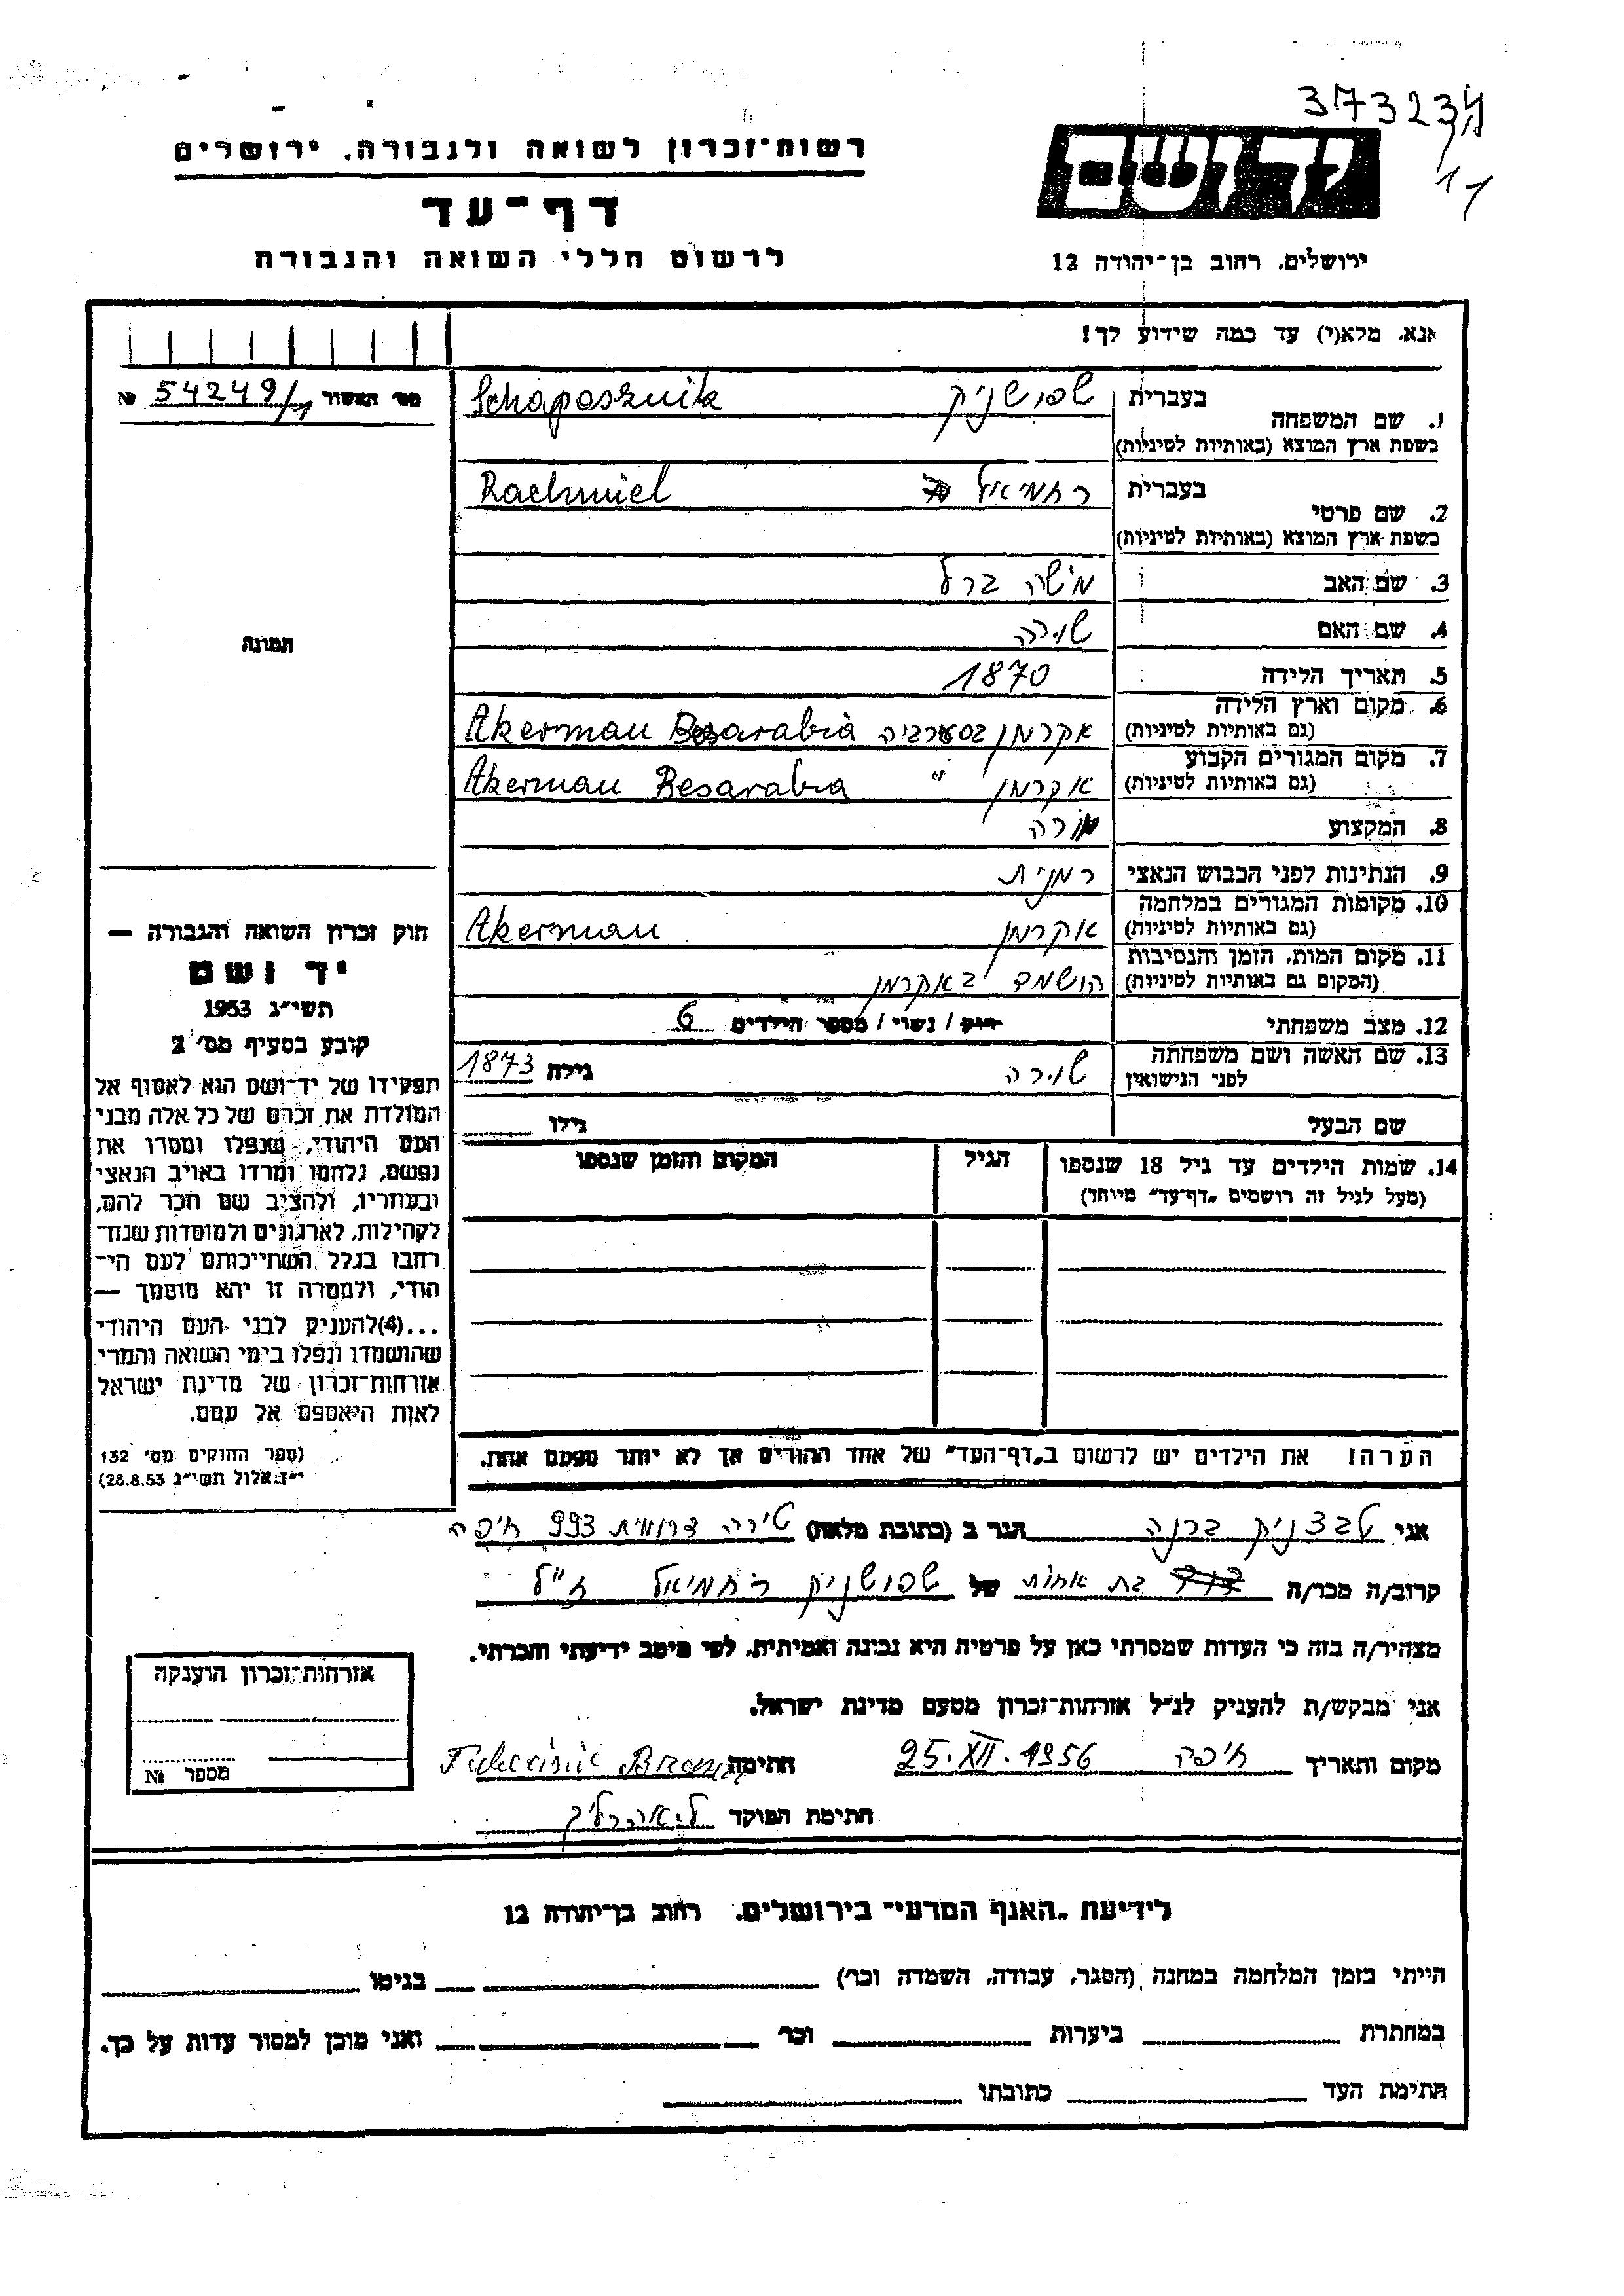 373234
11
רשות־זכרון לשואה ולגבורה, ירושלים
ידושם
דף־עד
לרשום חללי השואה והגבורה
ירושלים, רחוב בן־יהודה 12
אנא, מלא(י) עד כמה שידוע לך!
מס׳ האשור № 54249/1
1. שם המשפחה
בעברית שפושניק
בשפת ארץ המוצא (באותיות לטיניות) Schaposznik
2. שם פרטי
בעברית רחמיאל
בשפת ארץ המוצא (באותיות לטיניות) Rachmiel
3. שם האב משה ברל
4. שם האם שורה
תמונה
5. תאריך הלידה 1870
6. מקום וארץ הלידה
(גם באותיות לטיניות) אקרמן בסערביה Akerman Besarabia
7. מקום המגורים הקבוע
(גם באותיות לטיניות) אקרמן " Akerman Besarabia
8. המקצוע מורה
9. הנתינות לפני הכבוש הנאצי רמנית
10. מקומות המגורים במלחמה
(גם באותיות לטיניות) אקרמן Akerman
11. מקום המות, הזמן והנסיבות
(המקום גם באותיות לטיניות) הושמד באקרמן
12. מצב משפחתי רווק / נשוי / מספר הילדים 6
13. שם האשה ושם משפחתה
לפני הנישואין שורה גילה 1873
שם הבעל גילו
14. שמות הילדים עד גיל 18 שנספו
(מעל לגיל זה רושמים "דף־עד" מיוחד)
הגיל
המקום והזמן שנספו
חוק זכרון השואה והגבורה —
יד ושם
תשי״ג 1953
קובע בסעיף מס׳ 2
תפקידו של יד־ושם הוא לאסוף אל
המולדת את זכרם של כל אלה מבני
העם היהודי, שנפלו ומסרו את
נפשם, נלחמו ומרדו באויב הנאצי
ובעוזריו, ולהציב שם וזכר להם,
לקהילות, לארגונים ולמוסדות שנח־
רבו בגלל השתייכותם לעם הי־
הודי, ולמטרה זו יהא מוסמך —
...(4) להעניק לבני העם היהודי
שהושמדו ונפלו בימי השואה והמרי
אזרחות־זכרון של מדינת ישראל
לאות היאספם אל עמם.
(ספר החוקים מס׳ 132
י״ז אלול תשי״ג 28.8.53)
הערה! את הילדים יש לרשום ב"דף־העד" של אחד ההורים אך לא יותר מפעם אחת.
אני טבצניק ברנה הגר ב (כתובת מלאה) טירה דרומית 993 חיפה
קרוב/ה מכר/ה בת אחות של שפושניק רחמיאל ז״ל
מצהיר/ה בזה כי העדות שמסרתי כאן על פרטיה היא נכונה ואמיתית, לפי מיטב ידיעתי והכרתי.
אני מבקש/ת להעניק לנ״ל אזרחות־זכרון מטעם מדינת ישראל.
מקום ותאריך חיפה 25.XII.1956 חתימה
חתימת הפוקד
אזרחות־זכרון הוענקה
מספר №
לידיעת "האגף המדעי" בירושלים, רחוב בן־יהודה 12
הייתי בזמן המלחמה במחנה (הסגר, עבודה, השמדה וכו׳) בגיטו
במחתרת ביערות וכו׳ ואני מוכן למסור עדות על כך.
חתימת העד כתובתו